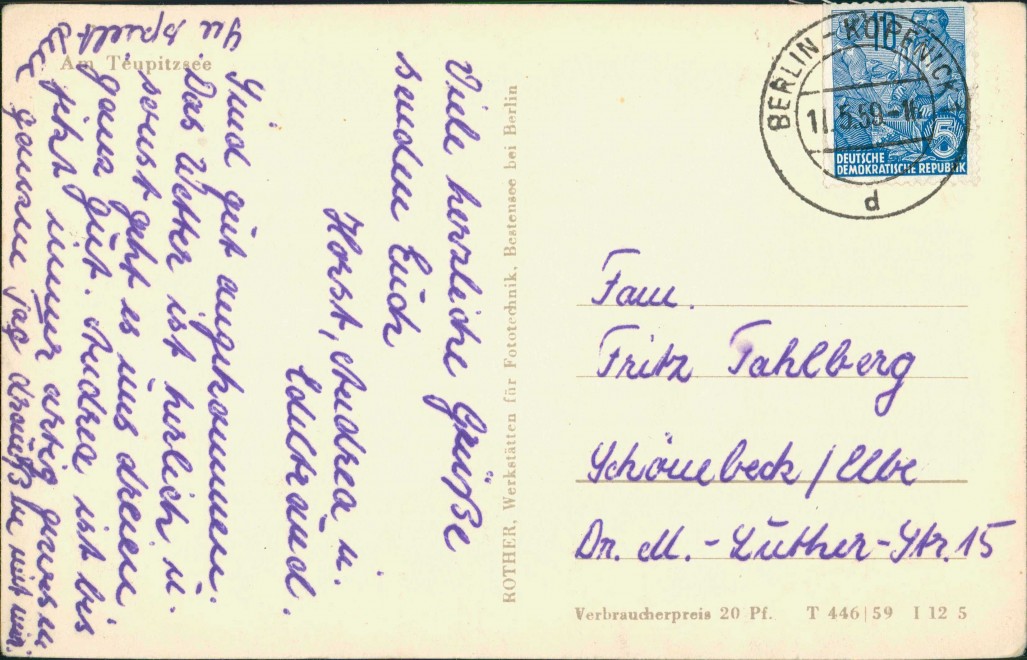 Am Teupitzsee
Viele herzliche Grüße
senden Euch
Horst, Andrea u.
Edeltraud.
Sind gut angekommen.
Das Wetter ist herlich u.
sonst geht es uns dreien
ganz gut. Andrea ist bis
jetzt immer artig gewesen
spielt
ganzen Tag draußen mit mir.
ROTHER, Werkstätten für Fototechnik, Bestensee bei Berlin
BERLIN-KÖPENICK
11.5.59
d
10
5
DEUTSCHE
DEMOKRATISCHE REPUBLIK
Fam.
Fritz Tahlberg
Schönebeck/Elbe
Dr. M.-Luther-Str. 15
Verbraucherpreis 20 Pf. T 446|59 I 12 5